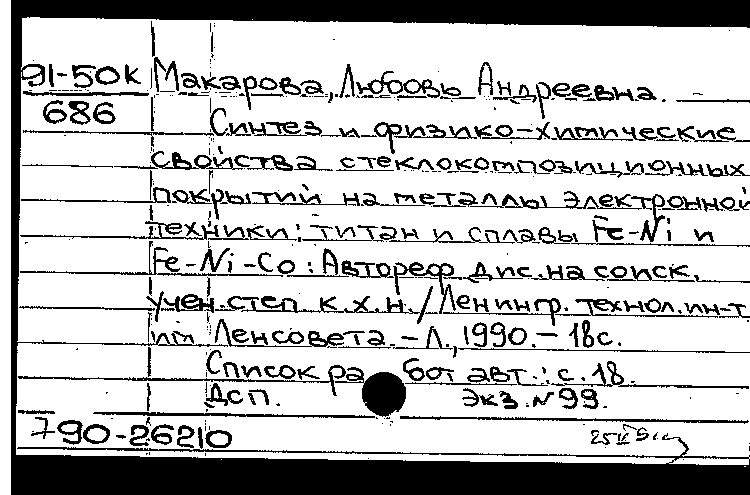 91-50к Макарова, Любовь Андреевна.
686
Синтез и физико-химические
свойства стеклокомпозиционных
покрытий на металлы электронной
техники: титан и сплавы Fe-Ni и
Fe-Ni-Co: Автореф. дис. на соиск.
учен. степ. к.х.н. / Ленингр. технол. ин-т
им. Ленсовета. - Л., 1990. - 18с.
Список работ авт.: с. 18.
ДСП. Экз. N 99.
790-26210